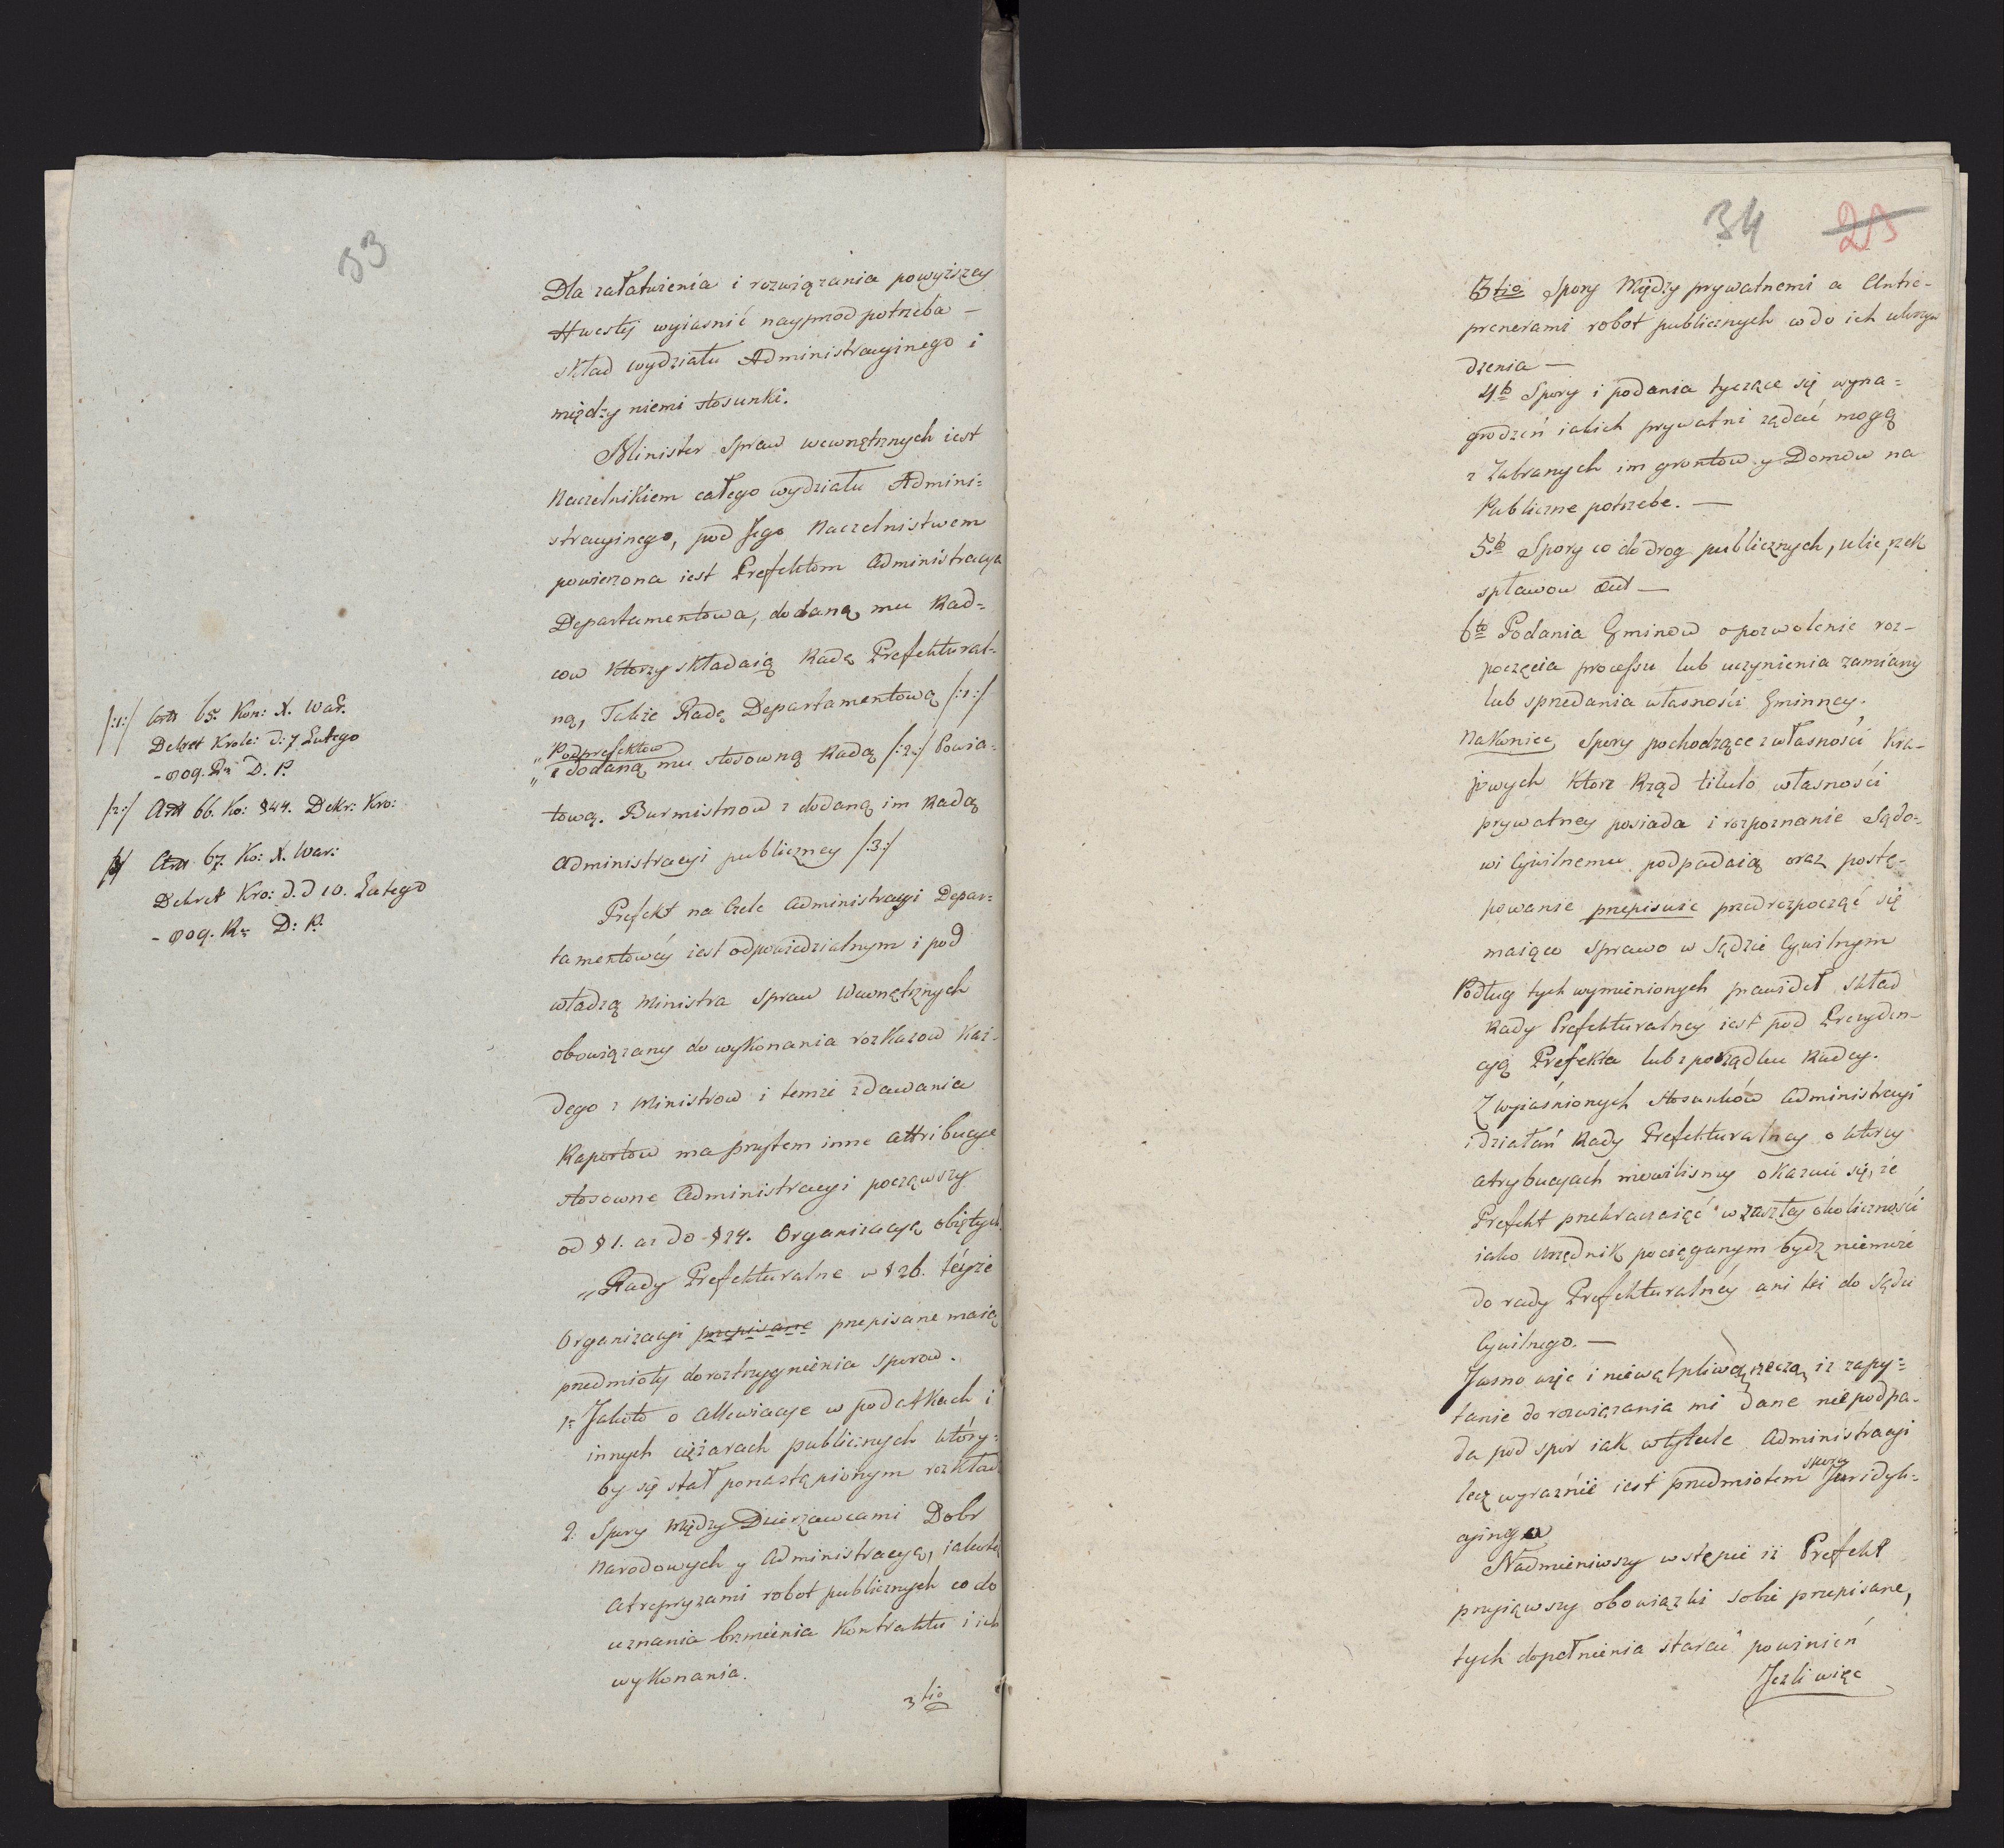 33
Dla załatwienia i rozwiązania powyższey
Kwestij wyiasnić nayprzod potrzeba —
skład wydziału Administracyinego i
między niemi stosunki.
Minister Spraw wewnętrznych iest
Naczelnikiem całego wydziału Admini=
stracyinego, pod Jego Naczelnistwem
powierzona iest Prefektom Administracya
Departamentowa, dodaną mu Rad=
cow Ktorzy składaią Radę Prefektural-
ną, Takze Radę Departamentową /:1:/
„Podprefektow
„z dodaną mu stosowną Radą /:2:/ Powia-
tową. Burmistrzow z dodaną im Radą
Administracyi publiczney /:3:/
Prefekt na Czele Administracyi Depar=
tamentowéy iest odpowiedzialnym i pod
władzą Ministra Spraw Wewnętrznych
obowiązany do wykonania rozkazow Kaz-
dego z Ministrow i temze zdawania
Raportow ma przytem inne attribucye
stosowne Administracyi począwszy
od § 1. az do § 24. Organizacyą obiętych
„Rady Prefekturalne w § 26. téyze
Organizacyi przepisane przepisane maią
przedmioty do roztrzygnienia sporow.
1o Jakoto o allewiacye w podatkach i
innych ciężarach publicznych który=
by się stał ponastąpionym rozkład
2. Spory między Dzierzawcami Dobr
Narodowych y Administracyą, iakoteż
Atrepryzami robot publicznych co do
uznania brzmienia Kontraktu i ich
wykonania.
3tio
/:1:/ Artt 65. Kon: X. War.
Dekret Krole: d: 7 Lutego
- 809. Ru D. P.
/:2:/ Artt 66. Ko: § 44. Dekr: Kro:
/3/ Artt 67. Ko: X. War:
Dekret Kro: d. d 10. Lutego
- 809. Ru D: P.
34 25
3tio Spory Między prywatnemi a Antre-
prenerami robot publicznych co do ich
dzenia —
4to Spory i podania tyczące się wyna=
grodzeń iakich prywatni ządać mogą
z Zabranych im grontow y Domow na
Publiczne potrzebe. —
5to Spory co do drog publicznych, ulic, rzek
spławow —
6to Podania Gminow o pozwolenie roz-
poczęcia processu lub uczynienia zamiany
lub sprzedania własności Gminney.
Nakoniec, Spory pochodzące z własności Kra-
jowych Ktore Rząd titulo własności
prywatney posiada i rozpoznanie Sądo-
wi Cywilnemu podpadaią oraz postę-
powanie przepisuie przedrozpocząć się
maiąco Sprawo w Sądzie Cywilnym
Podług tych wymienionych prawideł skład
Rady Prefekturalnéy iest pod Prezyden-
cyą Prefekta lub z porządku Radcy.
Z wyiaśnionych Stosunków Administracyi
i działań Rady Prefekturalney o którey
atrybucyach mowilismy okazuie się, że
Prefekt przekraczaiąć w zaszłey okoliczności
iako Urzędnik pociąganym bydz niemoże
do rady Prefekturalnéy ani też do Sądu
Cywilnego. —
Jasno więc i niewątpliwą rzeczą iż zapy=
tanie do rozwiązania mi dane nie podpa-
da pod spór iak w tytule Administracyi
lecz wyraźnie iest przedmiotem sporu Juridyk=
cyingo
Nadmieniwszy wstępie iż Prefekt
przyiąwszy obowiązki sobie przepisane,
tych dopełnienia starać powinień
Jezli więc